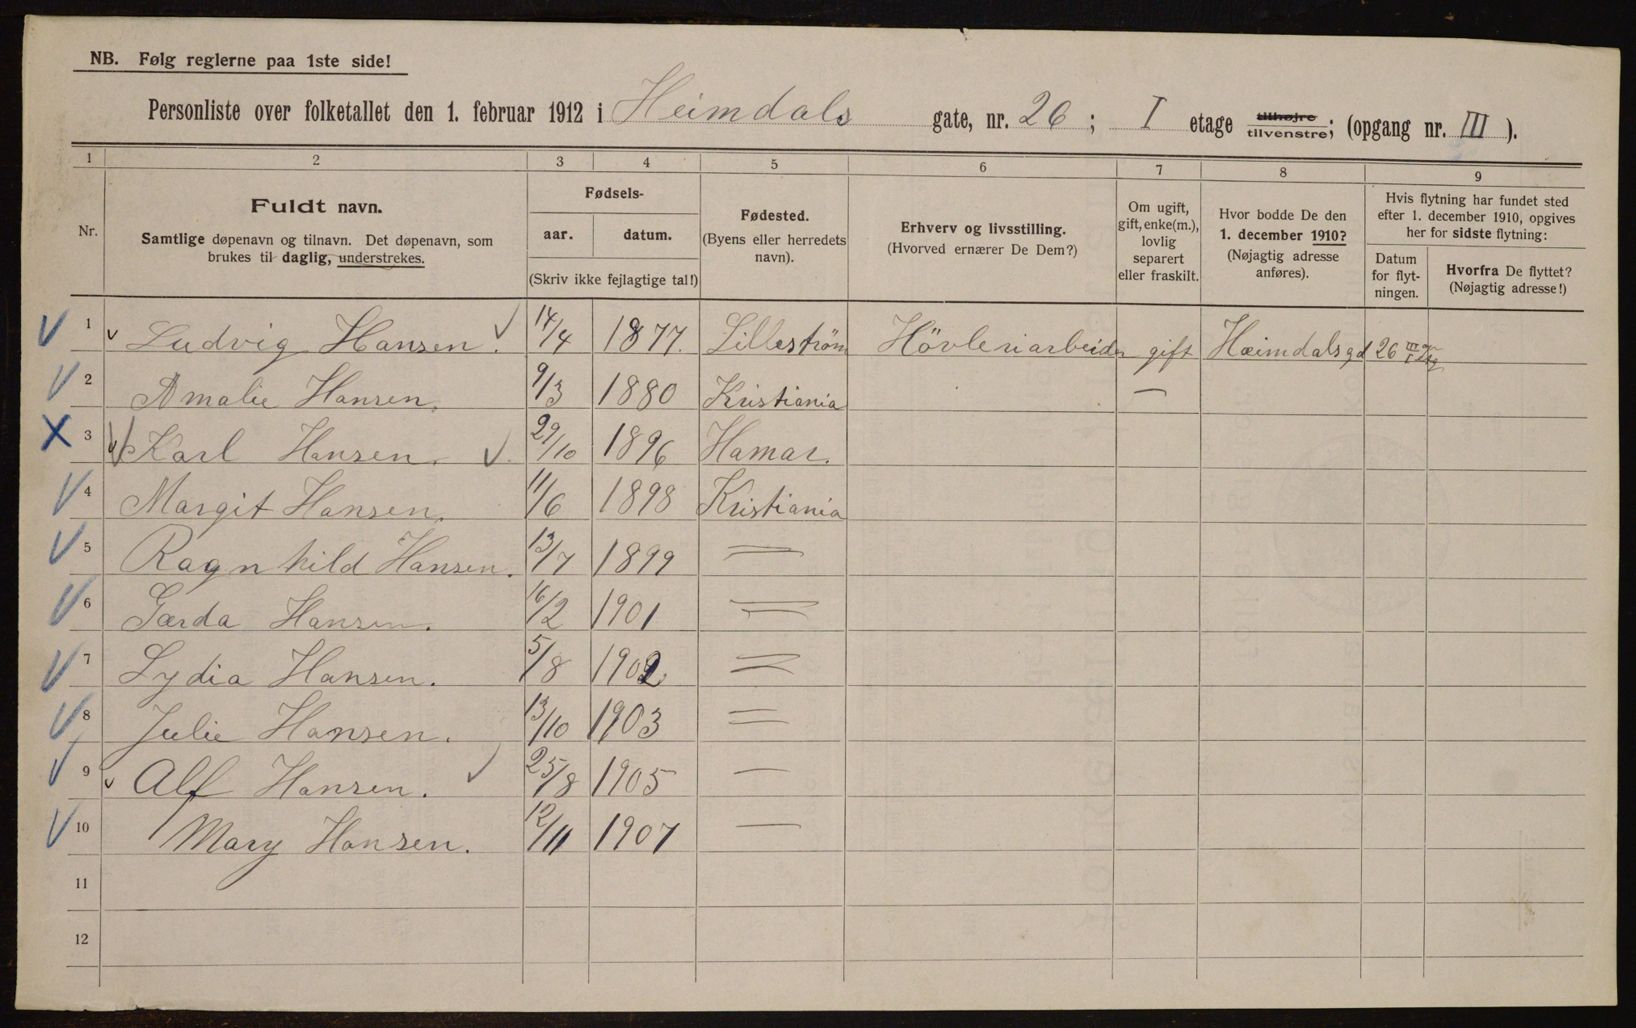 NB. Følg reglerne paa 1ste side!
Personliste over folketallet den 1. februar 1912 i Heimdals gate, nr. 26 ; I etage tilhøjre tilvenstre; (opgang nr. III ).
1 2 3 4 5 6 7 8 9
Nr.
Fuldt navn.
Samtlige døpenavn og tilnavn. Det døpenavn, som
brukes til daglig, understrekes.
Fødsels-
aar. datum.
(Skriv ikke fejlagtige tal!)
Fødested.
(Byens eller herredets
navn).
Erhverv og livsstilling.
(Hvorved ernærer De Dem?)
Om ugift,
gift, enke(m.),
lovlig
separert
eller fraskilt.
Hvor bodde De den
1. december 1910?
(Nøjagtig adresse
anføres).
Hvis flytning har fundet sted
efter 1. december 1910, opgives
her for sidste flytning:
Datum
for flyt-
ningen.
Hvorfra De flyttet?
(Nøjagtig adresse!)
1 Ludvig Hansen. 14/4 1877. Lillestrøm Hövleriarbeider gift Heimdalsgd 26
2 Amalie Hansen. 9/3 1880 Kristiania —
3 Karl Hansen. 29/10 1896 Hamar.
4 Margit Hansen. 11/6 1898 Kristiania
5 Ragnhild Hansen. 13/7 1899 =
6 Gærda Hansen. 16/2 1901 =
7 Lydia Hansen. 5/8 1902 =
8 Julie Hansen. 13/10 1903 =
9 Alf Hansen. 25/8 1905 —
10 Mary Hansen. 12/11 1907 —
11
12